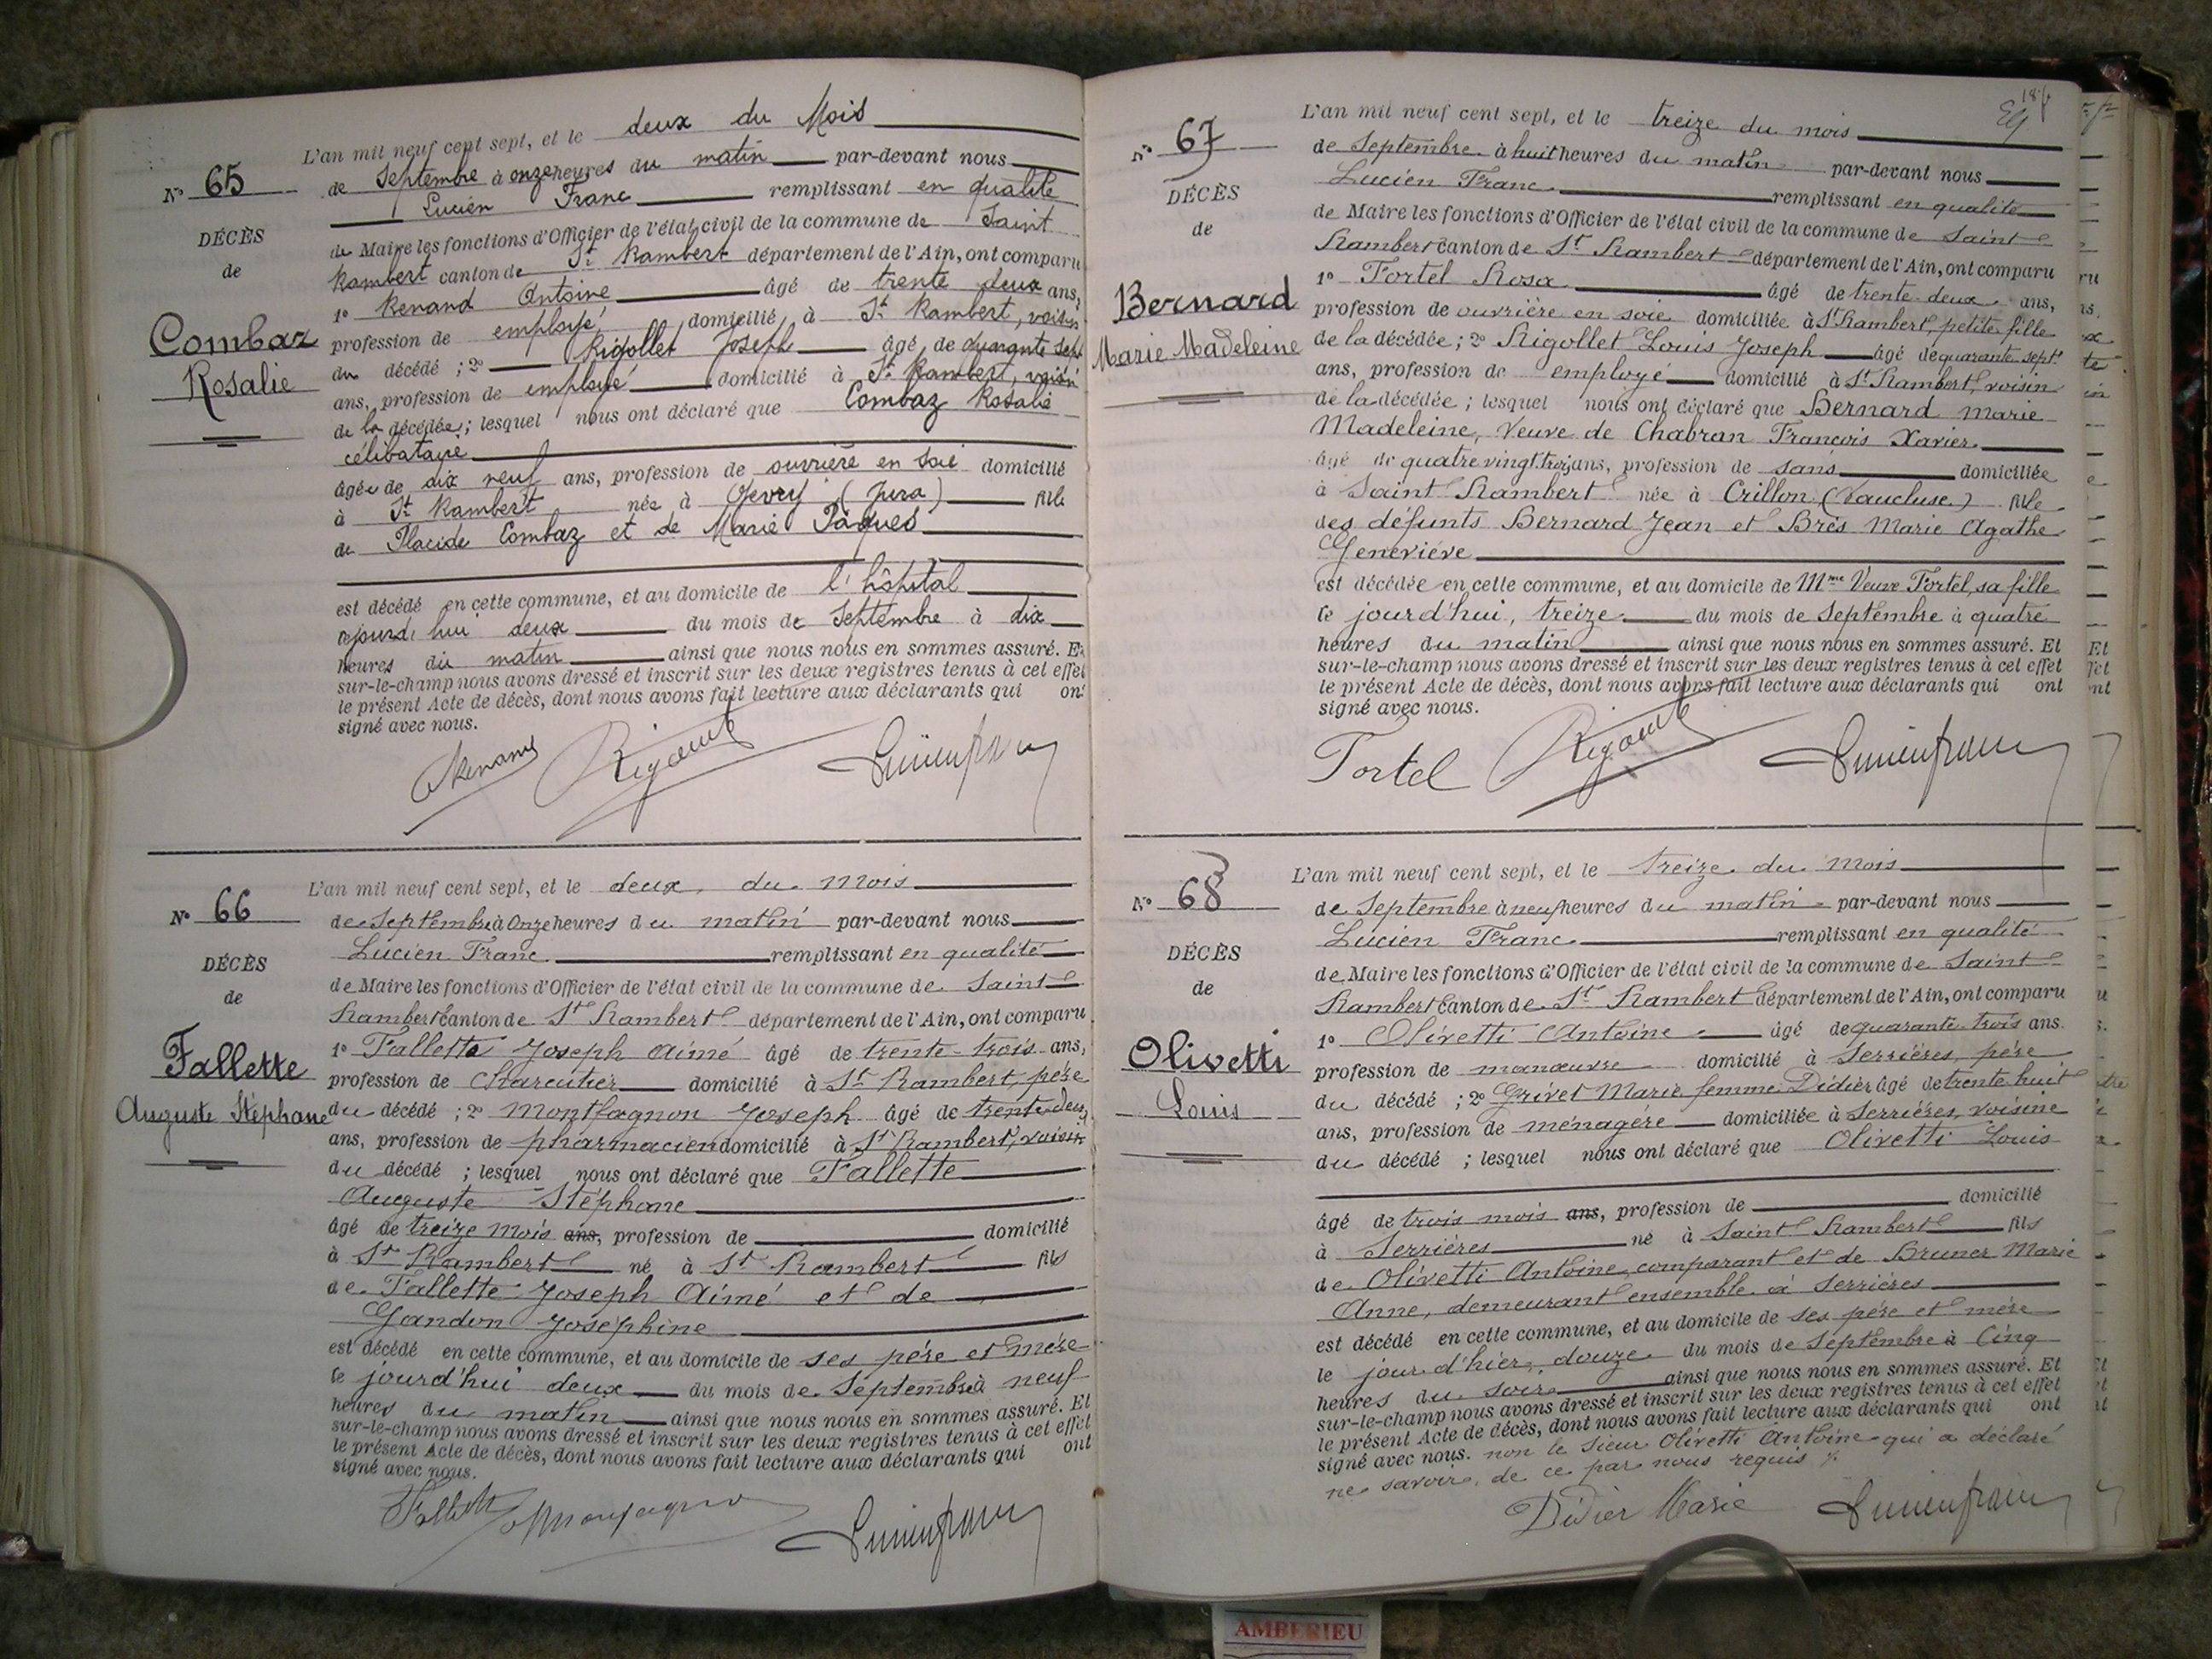 L'an mil neuf cent sept, et le deux du Mois
N° 65
de Septembre à onze heures du matin par-devant nous
Lucien Franc remplissant en qualité
DÉCÈS
de Maire les fonctions d'Officier de l'état civil de la commune de Saint
de
Rambert canton de St Rambert département de l'Ain, ont comparu
1° Renand Antoine âgé de trente deux ans,
Combaz
profession de employé domicilié à St Rambert, voisin
du décédé ; 2° Rigollet Joseph âgé de quarante sept
Rosalie
ans, profession de employé domicilié à St Rambert, voisin
de la décédée ; lesquel nous ont déclaré que Combaz Rosalie
célibataire
âgée de dix neuf ans, profession de ouvrière en soie domicilié
à St Rambert née à Gevry (Jura) fille
de Placide Combaz et de Marie Pâques
est décédé en cette commune, et au domicile de l'hôpital
ajourd'hui deux du mois de Septembre à dix
heures du matin ainsi que nous nous en sommes assuré. Et
sur-le-champ nous avons dressé et inscrit sur les deux registres tenus à cet effet
le présent Acte de décès, dont nous avons fait lecture aux déclarants qui ont
signé avec nous.
L'an mil neuf cent sept, et le deux du Mois
N° 66
de Septembre à Onze heures du matin par-devant nous
Lucien Franc remplissant en qualité
DÉCÈS
de Maire les fonctions d'Officier de l'état civil de la commune de Saint
de
Rambert canton de St Rambert département de l'Ain, ont comparu
1° Fallette Joseph Aimé âgé de trente-trois ans,
Fallette
profession de Charcutier domicilié à St Rambert, père
Auguste Stéphane
du décédé ; 2° Montfagnon Joseph âgé de trente deux
ans, profession de pharmacien domicilié à St Rambert, voisin
du décédé ; lesquel nous ont déclaré que Fallette
Auguste Stéphane
âgé de treize mois ans, profession de domicilié
à St Rambert né à St Rambert fils
de Fallette Joseph Aimé et de
Gandon Joséphine
est décédé en cette commune, et au domicile de ses père et mère
le jourd'hui deux du mois de Septembre à neuf
heures du matin ainsi que nous nous en sommes assuré. Et
sur-le-champ nous avons dressé et inscrit sur les deux registres tenus à cet effet
le présent Acte de décès, dont nous avons fait lecture aux déclarants qui ont
signé avec nous.
L'an mil neuf cent sept, et le treize du mois
N° 67
de Septembre à huit heures du matin par-devant nous
Lucien Franc remplissant en qualité
DÉCÈS
de Maire les fonctions d'Officier de l'état civil de la commune de Saint
de
Rambert canton de St Rambert département de l'Ain, ont comparu
1° Tortel Rosa âgé de trente-deux ans,
Bernard
profession de ouvrière en soie domiciliée à St Rambert, petite fille
Marie Madeleine
de la décédée ; 2° Rigollet Louis Joseph âgé de quarante sept
ans, profession de employé domicilié à St Rambert, voisin
de la décédée ; lesquel nous ont déclaré que Bernard Marie
Madeleine, Veuve de Chabran François Xavier
âgé de quatre vingt trois ans, profession de sans domiciliée
à Saint Rambert née à Crillon (Vaucluse) fille
des défunts Bernard Jean et Brès Marie Agathe
Geneviève
est décédée en cette commune, et au domicile de Mme Veuve Tortel, sa fille
le jourd'hui, treize du mois de Septembre à quatre
heures du matin ainsi que nous nous en sommes assuré. Et
sur-le-champ nous avons dressé et inscrit sur les deux registres tenus à cet effet
le présent Acte de décès, dont nous avons fait lecture aux déclarants qui ont
signé avec nous.
Tortel
L'an mil neuf cent sept, et le treize du mois
N° 68
de Septembre à neuf heures du matin par-devant nous
Lucien Franc remplissant en qualité
DÉCÈS
de Maire les fonctions d'Officier de l'état civil de la commune de Saint
de
Rambert canton de St Rambert département de l'Ain, ont comparu
1° Olivetti Antoine âgé de quarante trois ans.
Olivetti
profession de manœuvre domicilié à Serrières, père
Louis
du décédé ; 2° Grivet Marie femme Didier âgé de trente huit
ans, profession de ménagère domiciliée à Serrières, voisine
du décédé ; lesquel nous ont déclaré que Olivetti Louis
âgé de trois mois ans, profession de domicilié
à Serrières né à Saint Rambert fils
de Olivetti Antoine, comparant et de Bruner Marie
Anne, demeurant ensemble à Serrières
est décédé en cette commune, et au domicile de ses père et mère
le jour d'hier, douze du mois de Septembre à Cinq
heures du soir ainsi que nous nous en sommes assuré. Et
sur-le-champ nous avons dressé et inscrit sur les deux registres tenus à cet effet
le présent Acte de décès, dont nous avons fait lecture aux déclarants qui ont
signé avec nous. non le sieur Olivetti Antoine qui a déclaré
ne savoir, de ce par nous requis
Didier Marie
AMBERIEU